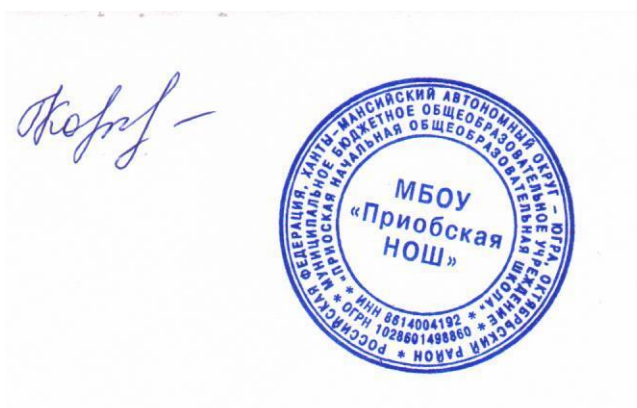 РОССИЙСКАЯ ФЕДЕРАЦИЯ, ХАНТЫ-МАНСИЙСКИЙ АВТОНОМНЫЙ ОКРУГ - ЮГРА, ОКТЯБРЬСКИЙ РАЙОН *
МУНИЦИПАЛЬНОЕ БЮДЖЕТНОЕ ОБЩЕОБРАЗОВАТЕЛЬНОЕ УЧРЕЖДЕНИЕ * ОГРН 1028601498860 *
"ПРИОСКАЯ НАЧАЛЬНАЯ ОБЩЕОБРАЗОВАТЕЛЬНАЯ ШКОЛА" * ИНН 8614004192 *
МБОУ
«Приобская
НОШ»